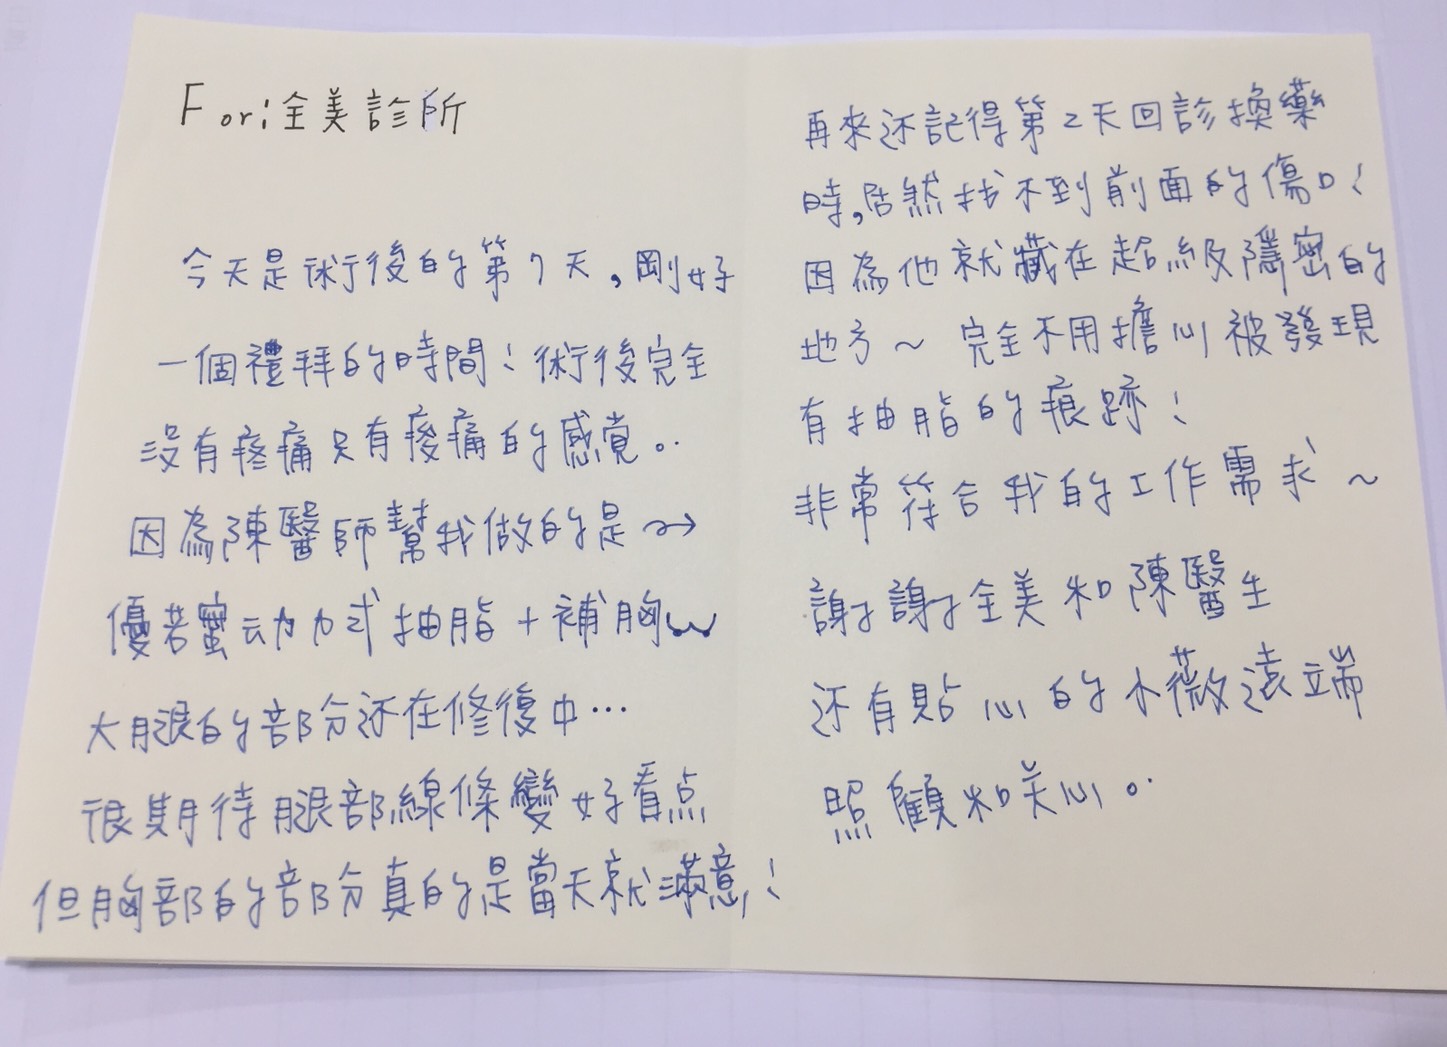 For:全美診所
今天是術後的第7天,剛好
一個禮拜的時間!術後完全
沒有疼痛只有痠痛的感覚。
因為陳醫師幫我做的是→
優若蜜动力式抽脂+補胸
大腿的部分还在修復中…
很期待腿部線條變好看点
但胸部的部分真的是當天就滿意!
再來还記得第2天回診換藥
時,居然找不到前面的傷口!
因為他就藏在超級隱密的
地方~ 完全不用擔心被發現
有抽脂的痕跡!
非常符合我的工作需求~
謝謝全美和陳醫生
还有貼心的小薇遠端
照顧和关心。